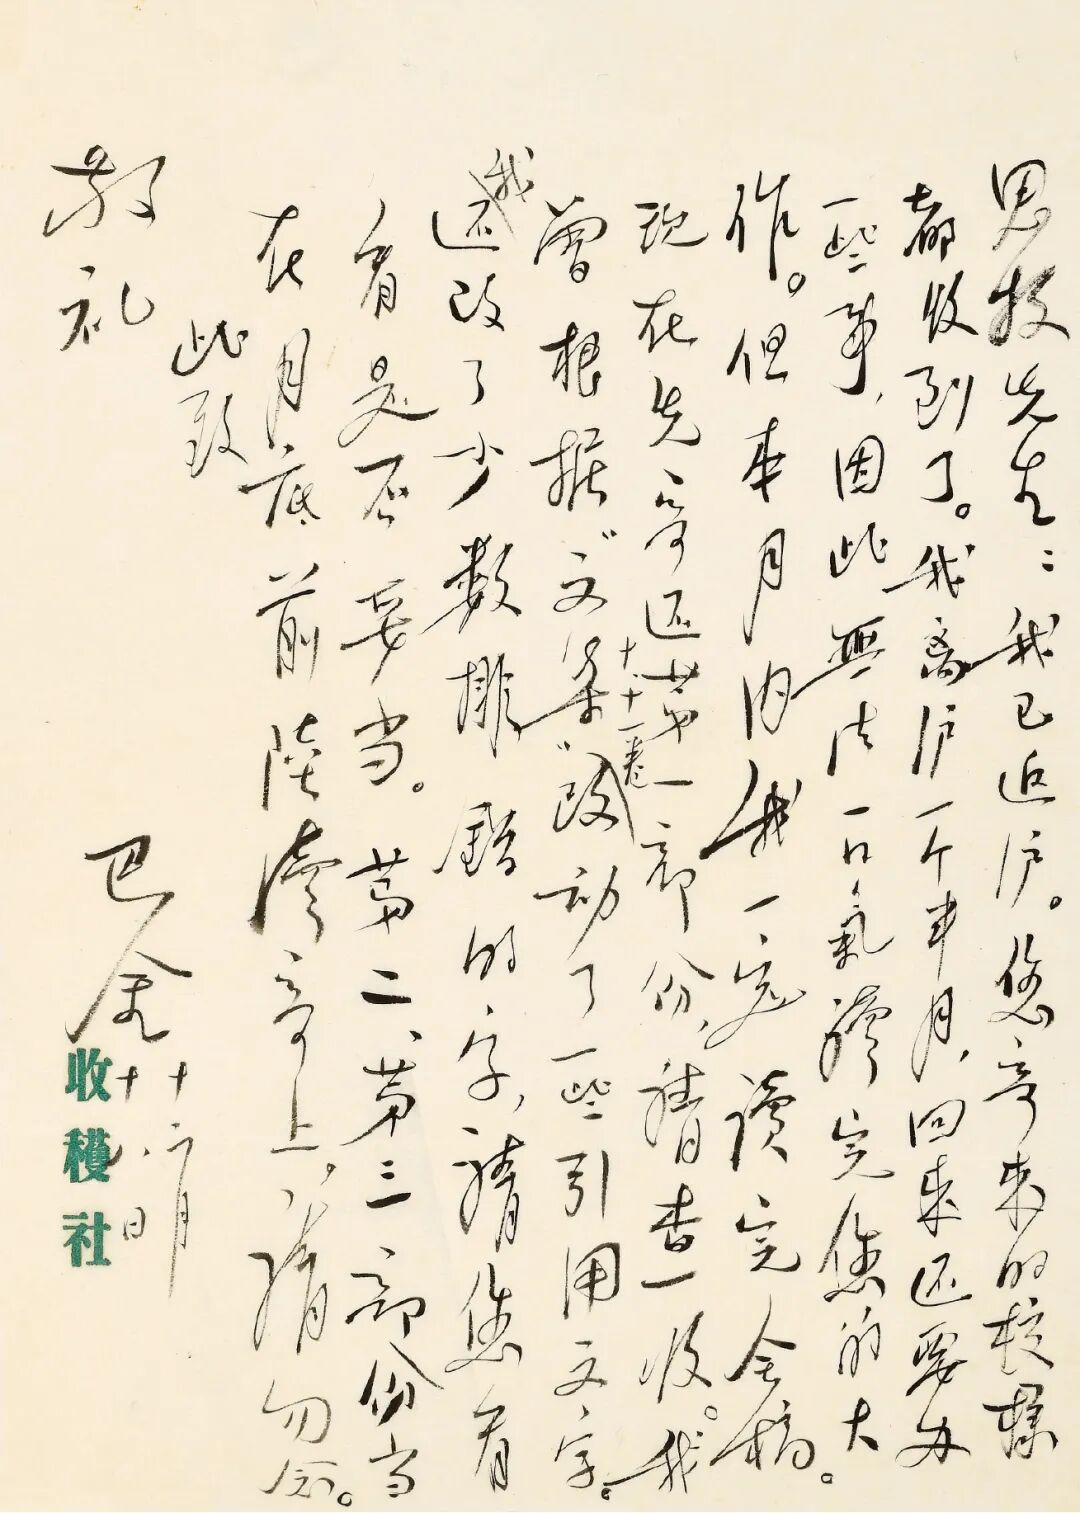 思牧先生：我已返沪。您寄来的校样
都收到了。我离沪一个半月，回来还要办
一些事，因此无法一口气读完您的大
作。但本月内我一定读完全稿。
现在先寄还第一部份，请查收。我
曾根据“文集”十、十一卷改动了一些引用文字。
我还改了少数排错的字，请您看
看是否妥当。第二、第三部份当
在月底前陆续寄上，请勿念。
此致
敬礼
巴金
十二月
十八日
收穫社